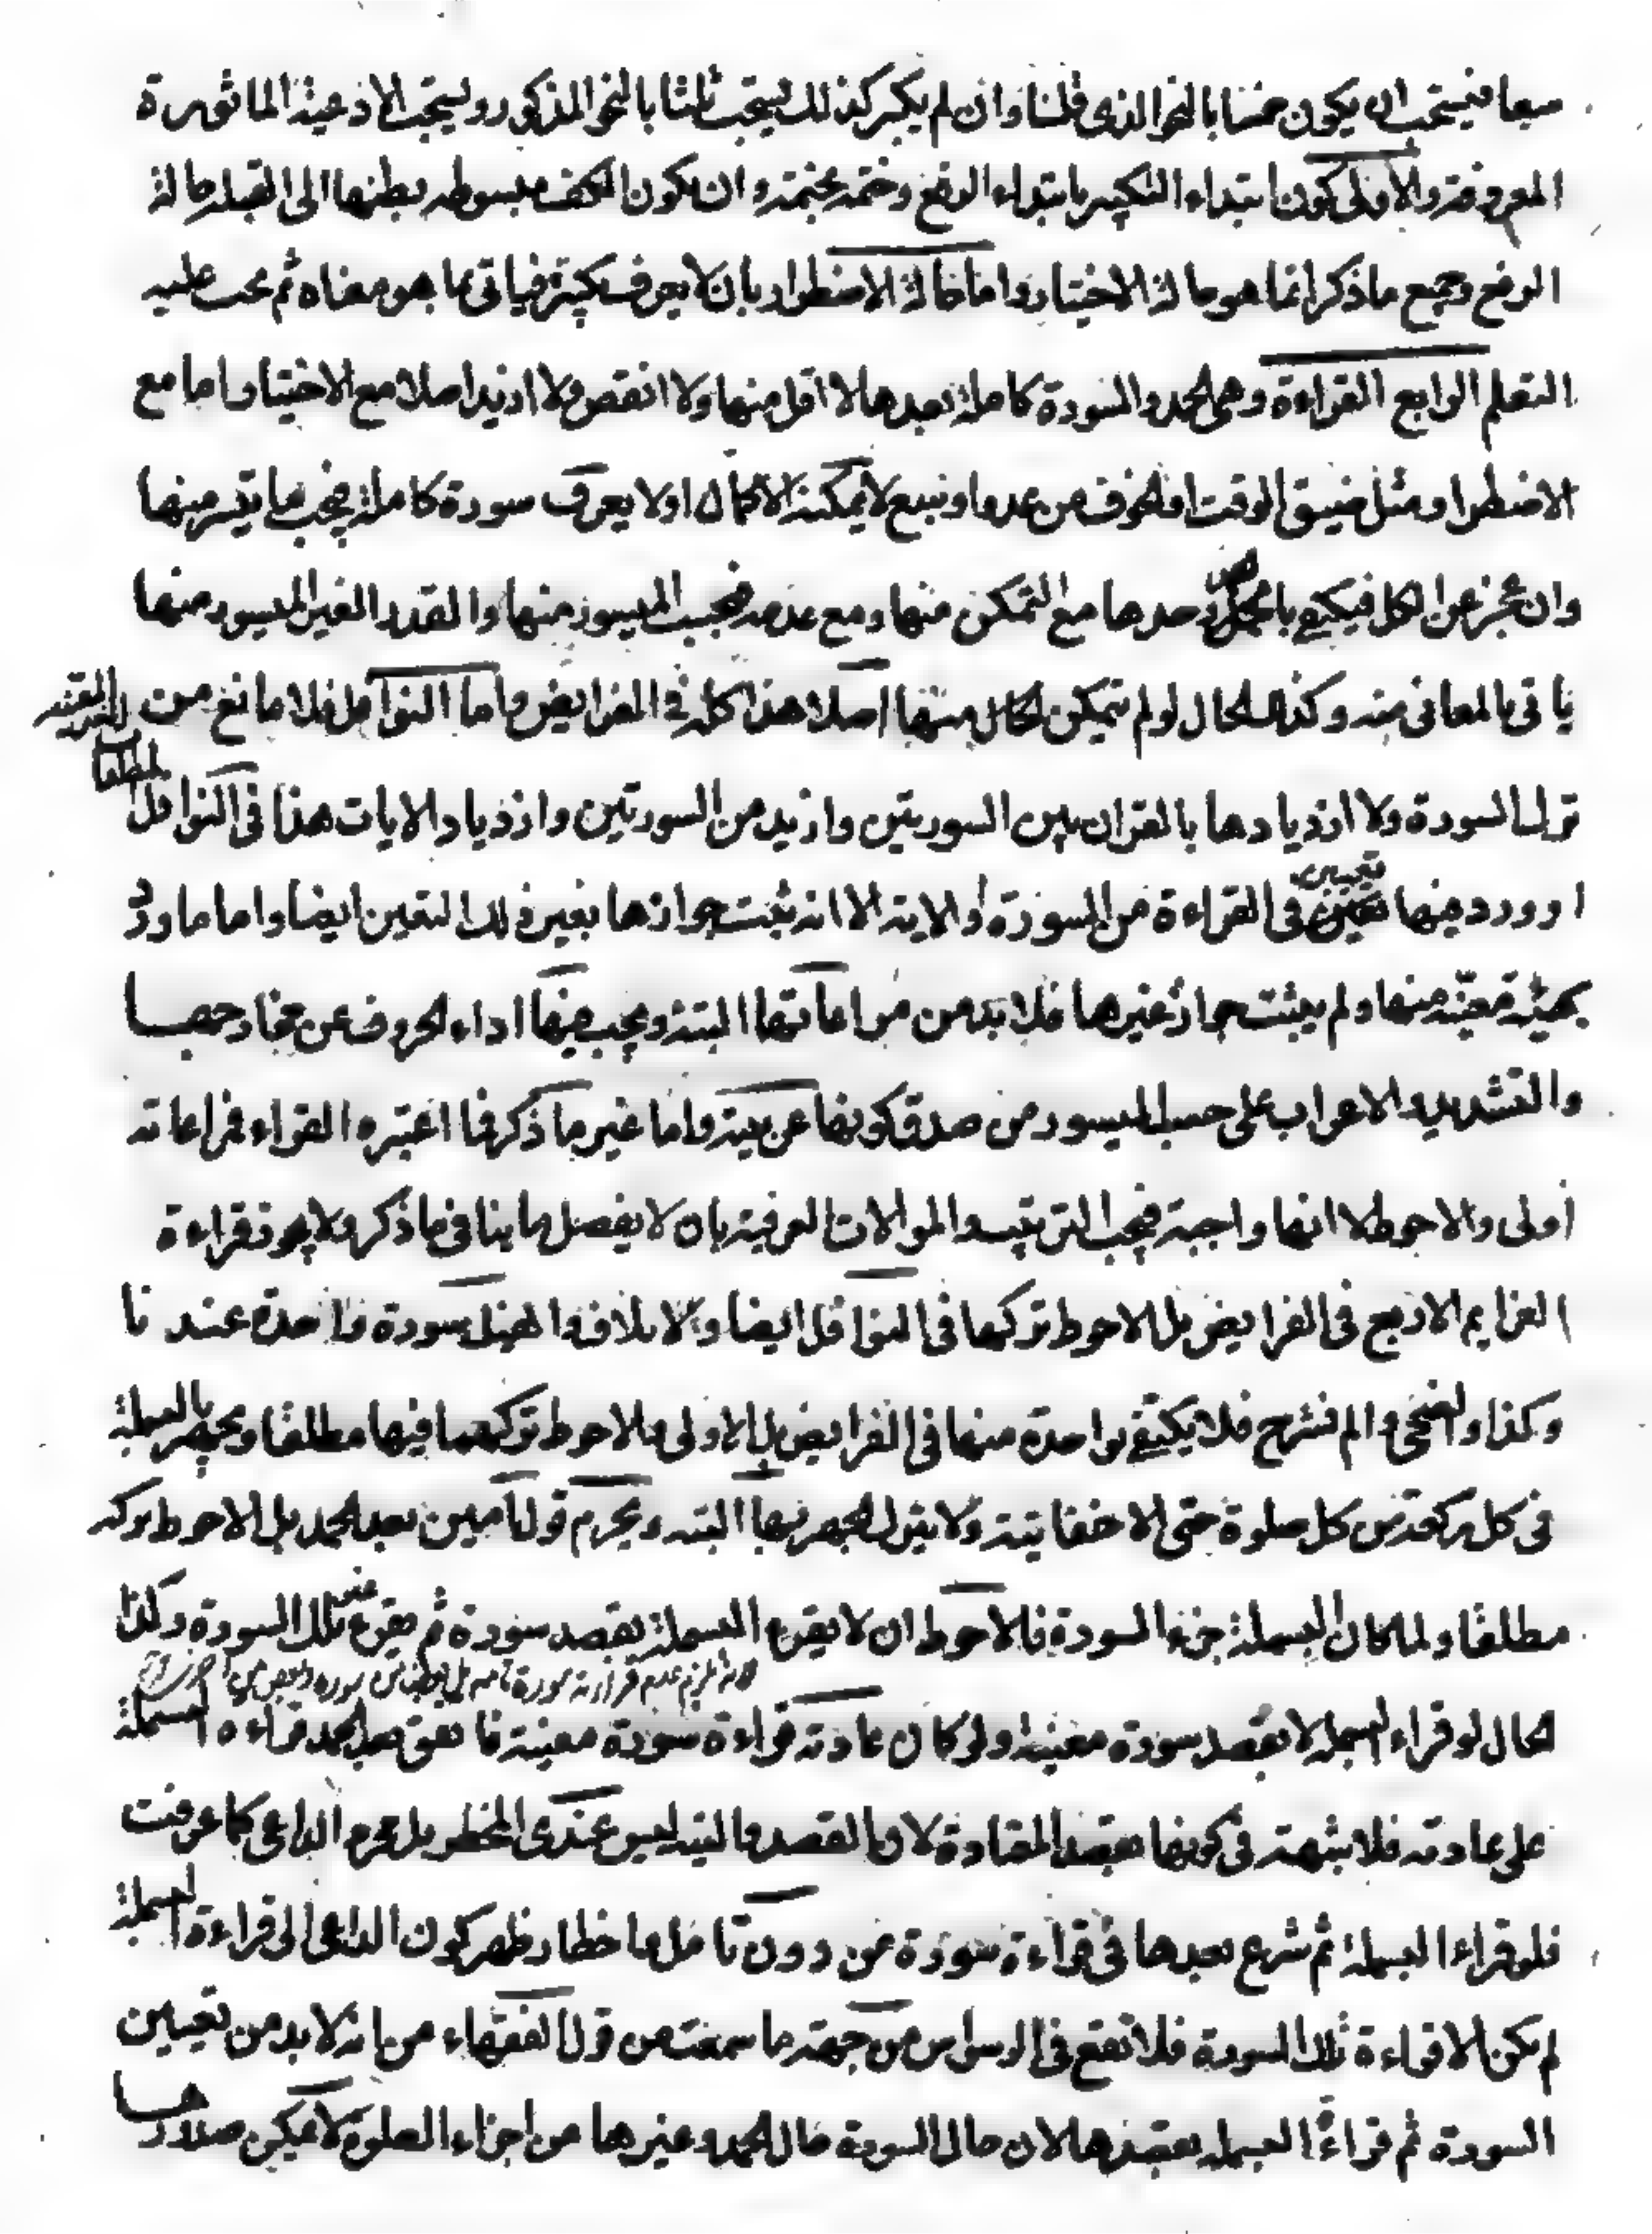 سبعا فيستحب ان يكون خمسا بالنحو الذى قلنا وان لم يكبر كذلك يستحب ثلثا بالنحو المذكور ويستحب الادعية الماثورة
المعروفة والاولى كون ابتداء التكبير بابتداء الرفع وختمه بختمه وان يكون الكف مبسوطه بطنها الى القبله حالة
الرفع وجميع ما ذكر انما هو حالة الاختيار واما حالة الاضطرار بان لا يعرف تكبيرة فياتى بما هو معناه ثم يجب عليه
التعلم الرابع القراءة وهى الحمد والسورة كاملة بعدها لا اقل منها ولا انقص ولا ازيد اصلا مع الاختيار واما مع
الاضطرار مثل ضيق الوقت او الخوف من عدو او سبع لا يمكنه الاكمال او لا يعرف سورة كاملة يجب ما تيسر منها
وان عجز عن الكل فيكتفى بالحمد وحدها مع التمكن منها ومع عدمه فيجب الميسور منها والقدر الغير الميسور منها
ياتى بالمعانى منه وكذا الحال لو لم يتمكن لكل منها اصلا هذا كله فى الفرايض واما النوافل فلا مانع من
ترك السورة ولا ازديادها بالقران بين السورتين وازيد من السورتين وازدياد الايات هذا فى النوافل
او ورد فيها تعيين فى القراءة من السورة او الاية الا انه ثبت جوازها بغير ذلك التعيين ايضا واما ما ورد
بهيئة معينة منها ولم يثبت جواز غيرها فلا بد من مراعاتها البتة ويجب فيها اداء الحروف عن مخارجها
والتشديد والاعراب على حسب الميسور من صدق كونها عربية واما غير ما ذكر فما اعتبره القراء فمراعاته
اولى والاحوط لا انها واجبة فيجب الترتيب والموالات العرفية بان لا يفصل ما ينافى ما ذكر ولا يجوز قراءة
العزايم الاربع فى الفرايض بل الاحوط تركها فى النوافل ايضا والايلاف والفيل سورة واحدة عندنا
وكذا والضحى والم نشرح فلا يكتفى بواحدة منها فى الفرايض بل الاولى والاحوط تركهما فيها مطلقا ويجهر بالبسملة
فى كل ركعة من كل صلوة حتى الاخفاتية ولا يترك الجهر بها البته ويحرم قول امين بعد الحمد بل الاحوط تركه
مطلقا ولما كان البسملة جزء السورة فالاحوط ان لا يقرء البسملة بقصد سورة ثم يقرء غير تلك السورة وكذا
الحال لو قراء البسمله لا بقصد سورة معينه ولو كان عادته قراءة سورة معينة فاتفق بعد الحمد قراءه البسملة
على عادته فلا شبهة فى كونها بقصد المعتادة لان القصد والنية ليس عندى المخطر بل هو الداعى كما عرفت
فلو قراء البسملة ثم شرع بعدها فى قراءة سورة من دون تامل واخطار ظهر كون الداعى الى قراءة البسملة
لم يكن الا قراءة تلك السورة فلا تقع فى الوسواس من جهة ما سمعت من قول الفقهاء من انه لا بد من تعيين
السورة ثم قراءة البسمله بقصدها لان حال السورة حال الحمد وغيرها من اجزاء الصلوة لا يمكن صدورها